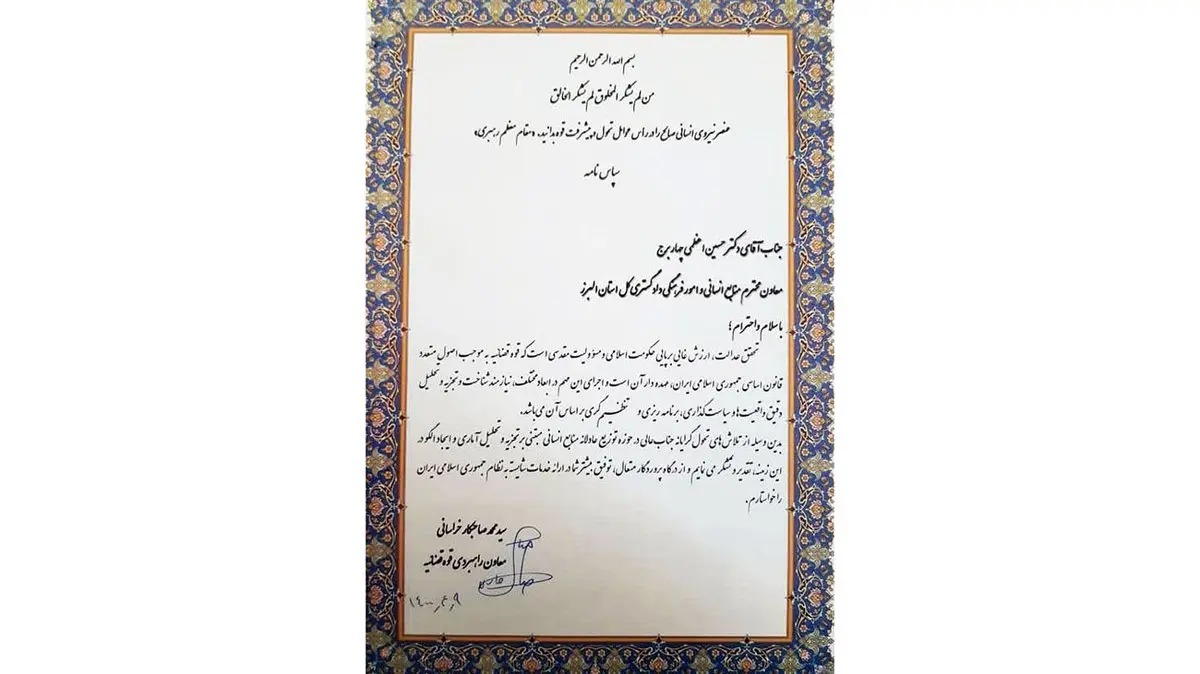 بسم الله الرحمن الرحیم
من لم یشکر المخلوق لم یشکر الخالق
عنصر نیروی انسانی صالح را در راس عوامل تحول و پیشرفت قوه بدانید. «مقام معظم رهبری»
سپاس نامه
جناب آقای دکتر حسین اعظمی چهاربرج
معاون محترم منابع انسانی و امور فرهنگی دادگستری کل استان البرز
با سلام و احترام؛
تحقق عدالت، ارزش غایی برپایی حکومت اسلامی و مسؤولیت مقدسی است که قوه قضائیه به موجب اصول متعدد
قانون اساسی جمهوری اسلامی ایران، عهده دار آن است و اجرای این مهم در ابعاد مختلف، نیازمند شناخت و تجزیه و تحلیل
دقیق واقعیت‌ها و سیاست گذاری، برنامه ریزی و تنظیم گری بر اساس آن می‌باشد.
بدین وسیله از تلاش‌های تحول گرایانه جنابعالی در حوزه توزیع عادلانه منابع انسانی مبتنی بر تجزیه و تحلیل آماری و ایجاد الگو در
این زمینه، تقدیر و تشکر می نمایم و از درگاه پروردگار متعال، توفیق بیشتر شما در ارائه خدمات شایسته به نظام جمهوری اسلامی ایران
را خواستارم.
سید محمد صاحبکار خراسانی
معاون راهبردی قوه قضائیه
۱۴۰۰٫۴٫۹